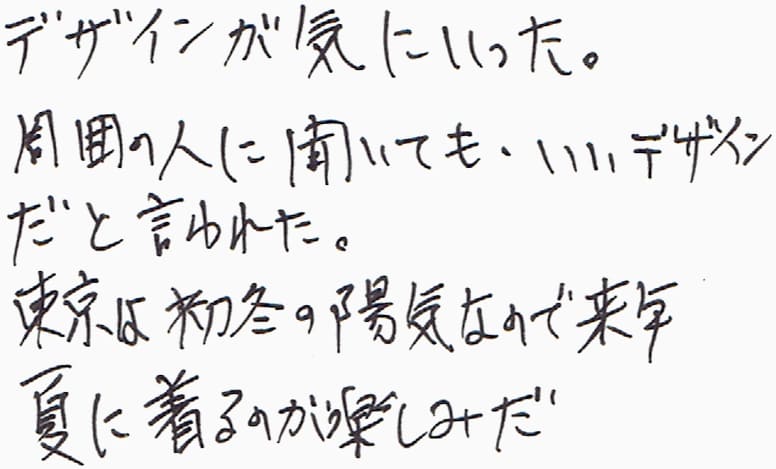 デザインが気にいった。
周囲の人に聞いても、いいデザイン
だと言われた。
東京は初冬の陽気なので来年
夏に着るのが楽しみだ